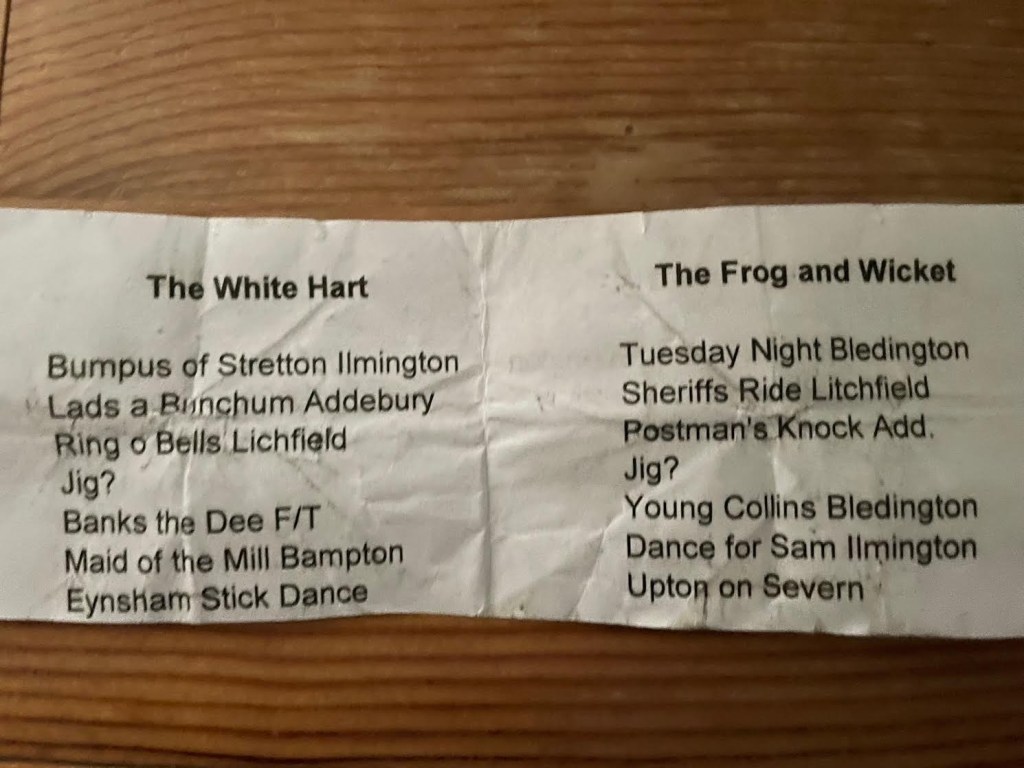 The White Hart
Bumpus of Stretton Ilmington
Lads a Bunchum Addebury
Ring o Bells Lichfield
Jig?
Banks the Dee F/T
Maid of the Mill Bampton
Eynsham Stick Dance
The Frog and Wicket
Tuesday Night Bledington
Sheriffs Ride Litchfield
Postman's Knock Add.
Jig?
Young Collins Bledington
Dance for Sam Ilmington
Upton on Severn